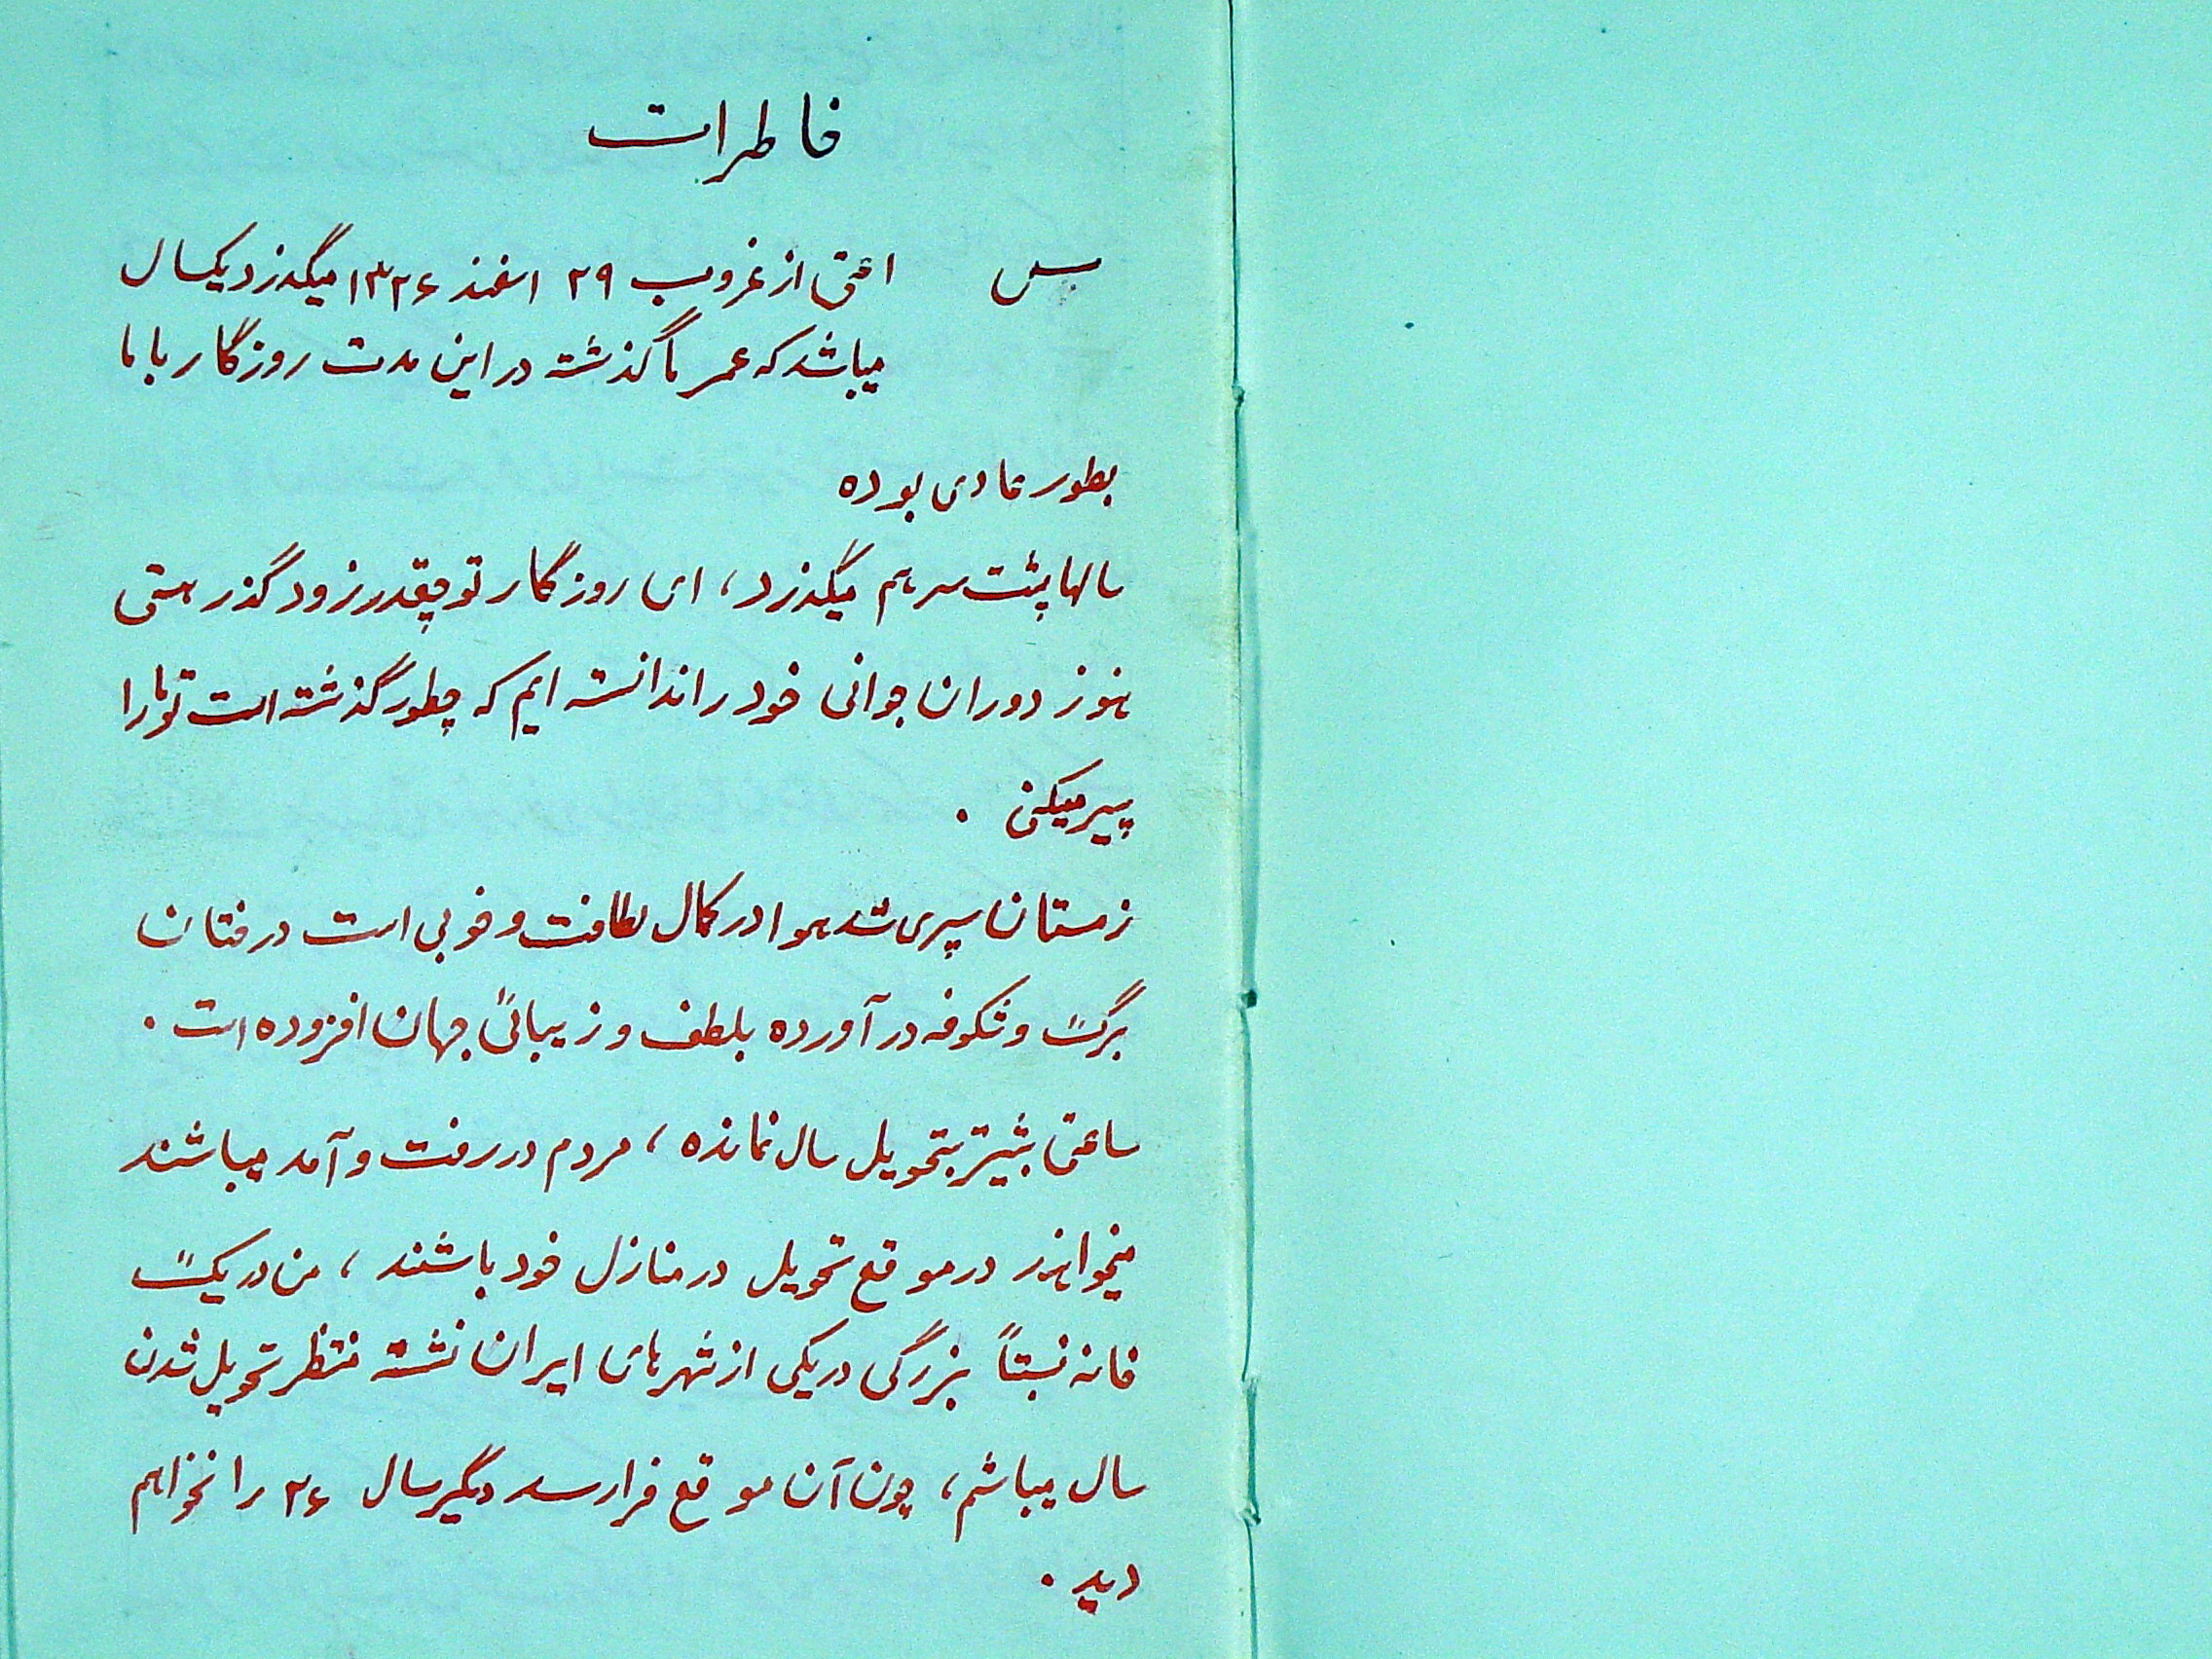 خاطرات
س اعتی از غروب ۲۹ اسفند ۱۳۲۶ میگذرد یکسال
میباشد که عمر ما گذشته در این مدت روزگار با ما
بطور عادی بوده
سالها پشت سر هم میگذرد، ای روزگار تو چقدر زود گذر هستی
هنوز دوران جوانی خود را ندانسته ایم که چطور گذشته است تو ما را
پیر میکنی .
زمستان سپری شد هوا در کمال لطافت و خوبی است درختان
برگ و شکوفه در آورده بلطف و زیبائی جهان افزوده است .
ساعتی بیشتر بتحویل سال نمانده، مردم در رفت و آمد میباشند
میخواهند در موقع تحویل در منازل خود باشند، من در یک
خانه نسبتاً بزرگی در یکی از شهرهای ایران نشسته منتظر تحویل شدن
سال میباشم، چون آن موقع فرا رسد دیگر سال ۲۶ را نخواهم
دید .